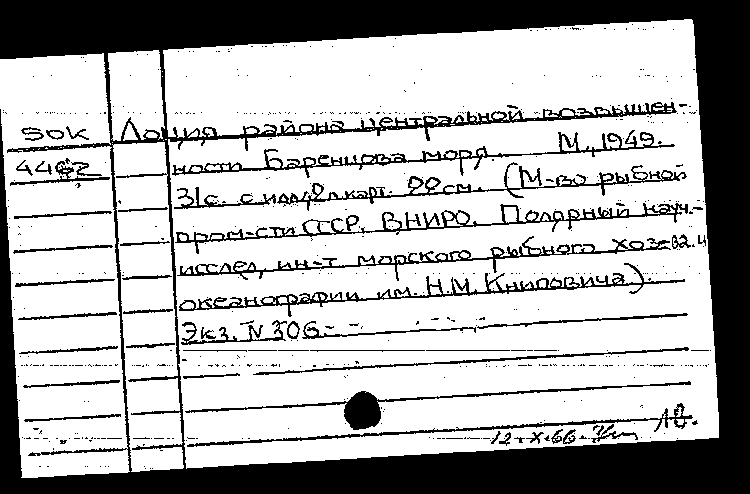 50к Лоция района центральной возвышен-
ности Баренцова моря. М., 1949.
31с. с илл., 2л. карт. 22см. (М-во рыбной
пром-сти СССР. ВНИРО. Полярный науч.-
исслед. ин-т морского рыбного хоз-ва и
океанографии им. Н.М. Книповича).
Экз. N 306.-
12.X.66.